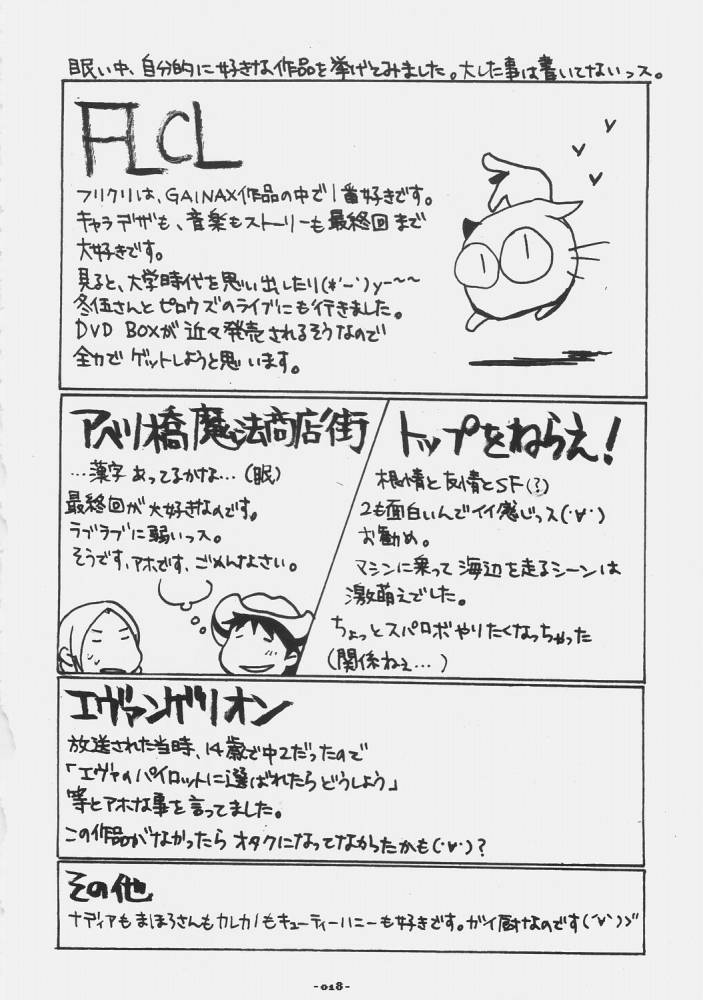 眠い中、自分的に好きな作品を挙げてみました。大した事は書いてないっス。
FLCL
フリクリは、GAINAX作品の中で1番好きです。
キャラデザも、音楽もストーリーも最終回まで
大好きです。
見ると、大学時代を思い出したり(*'-')y-~~
冬伍さんとピロウズのライブにも行きました。
DVD BOXが近々発売されるそうなので
全力でゲットしようと思います。
アベノ橋魔法商店街
…漢字あってるかな…(眠)
最終回が大好きなのです。
ラブラブに弱いっス。
そうです、アホです、ごめんなさい。
トップをねらえ!
根情と友情とSF(?)
2も面白いんでイイ感じっス(・∀・)
お勧め。
マシンに乗って海辺を走るシーンは
激萌えでした。
ちょっとスパロボやりたくなっちゃった
(関係ねぇ…)
エヴァンゲリオン
放送された当時、14歳で中2だったので
「エヴァのパイロットに選ばれたらどうしよう」
等とアホな事を言ってました。
この作品がなかったらオタクになってなかったかも(・∀・)?
その他
ナディアもまほろさんもカレカノもキューティーハニーも好きです。ガイ厨なのです(´∀`)ゞ
-018-